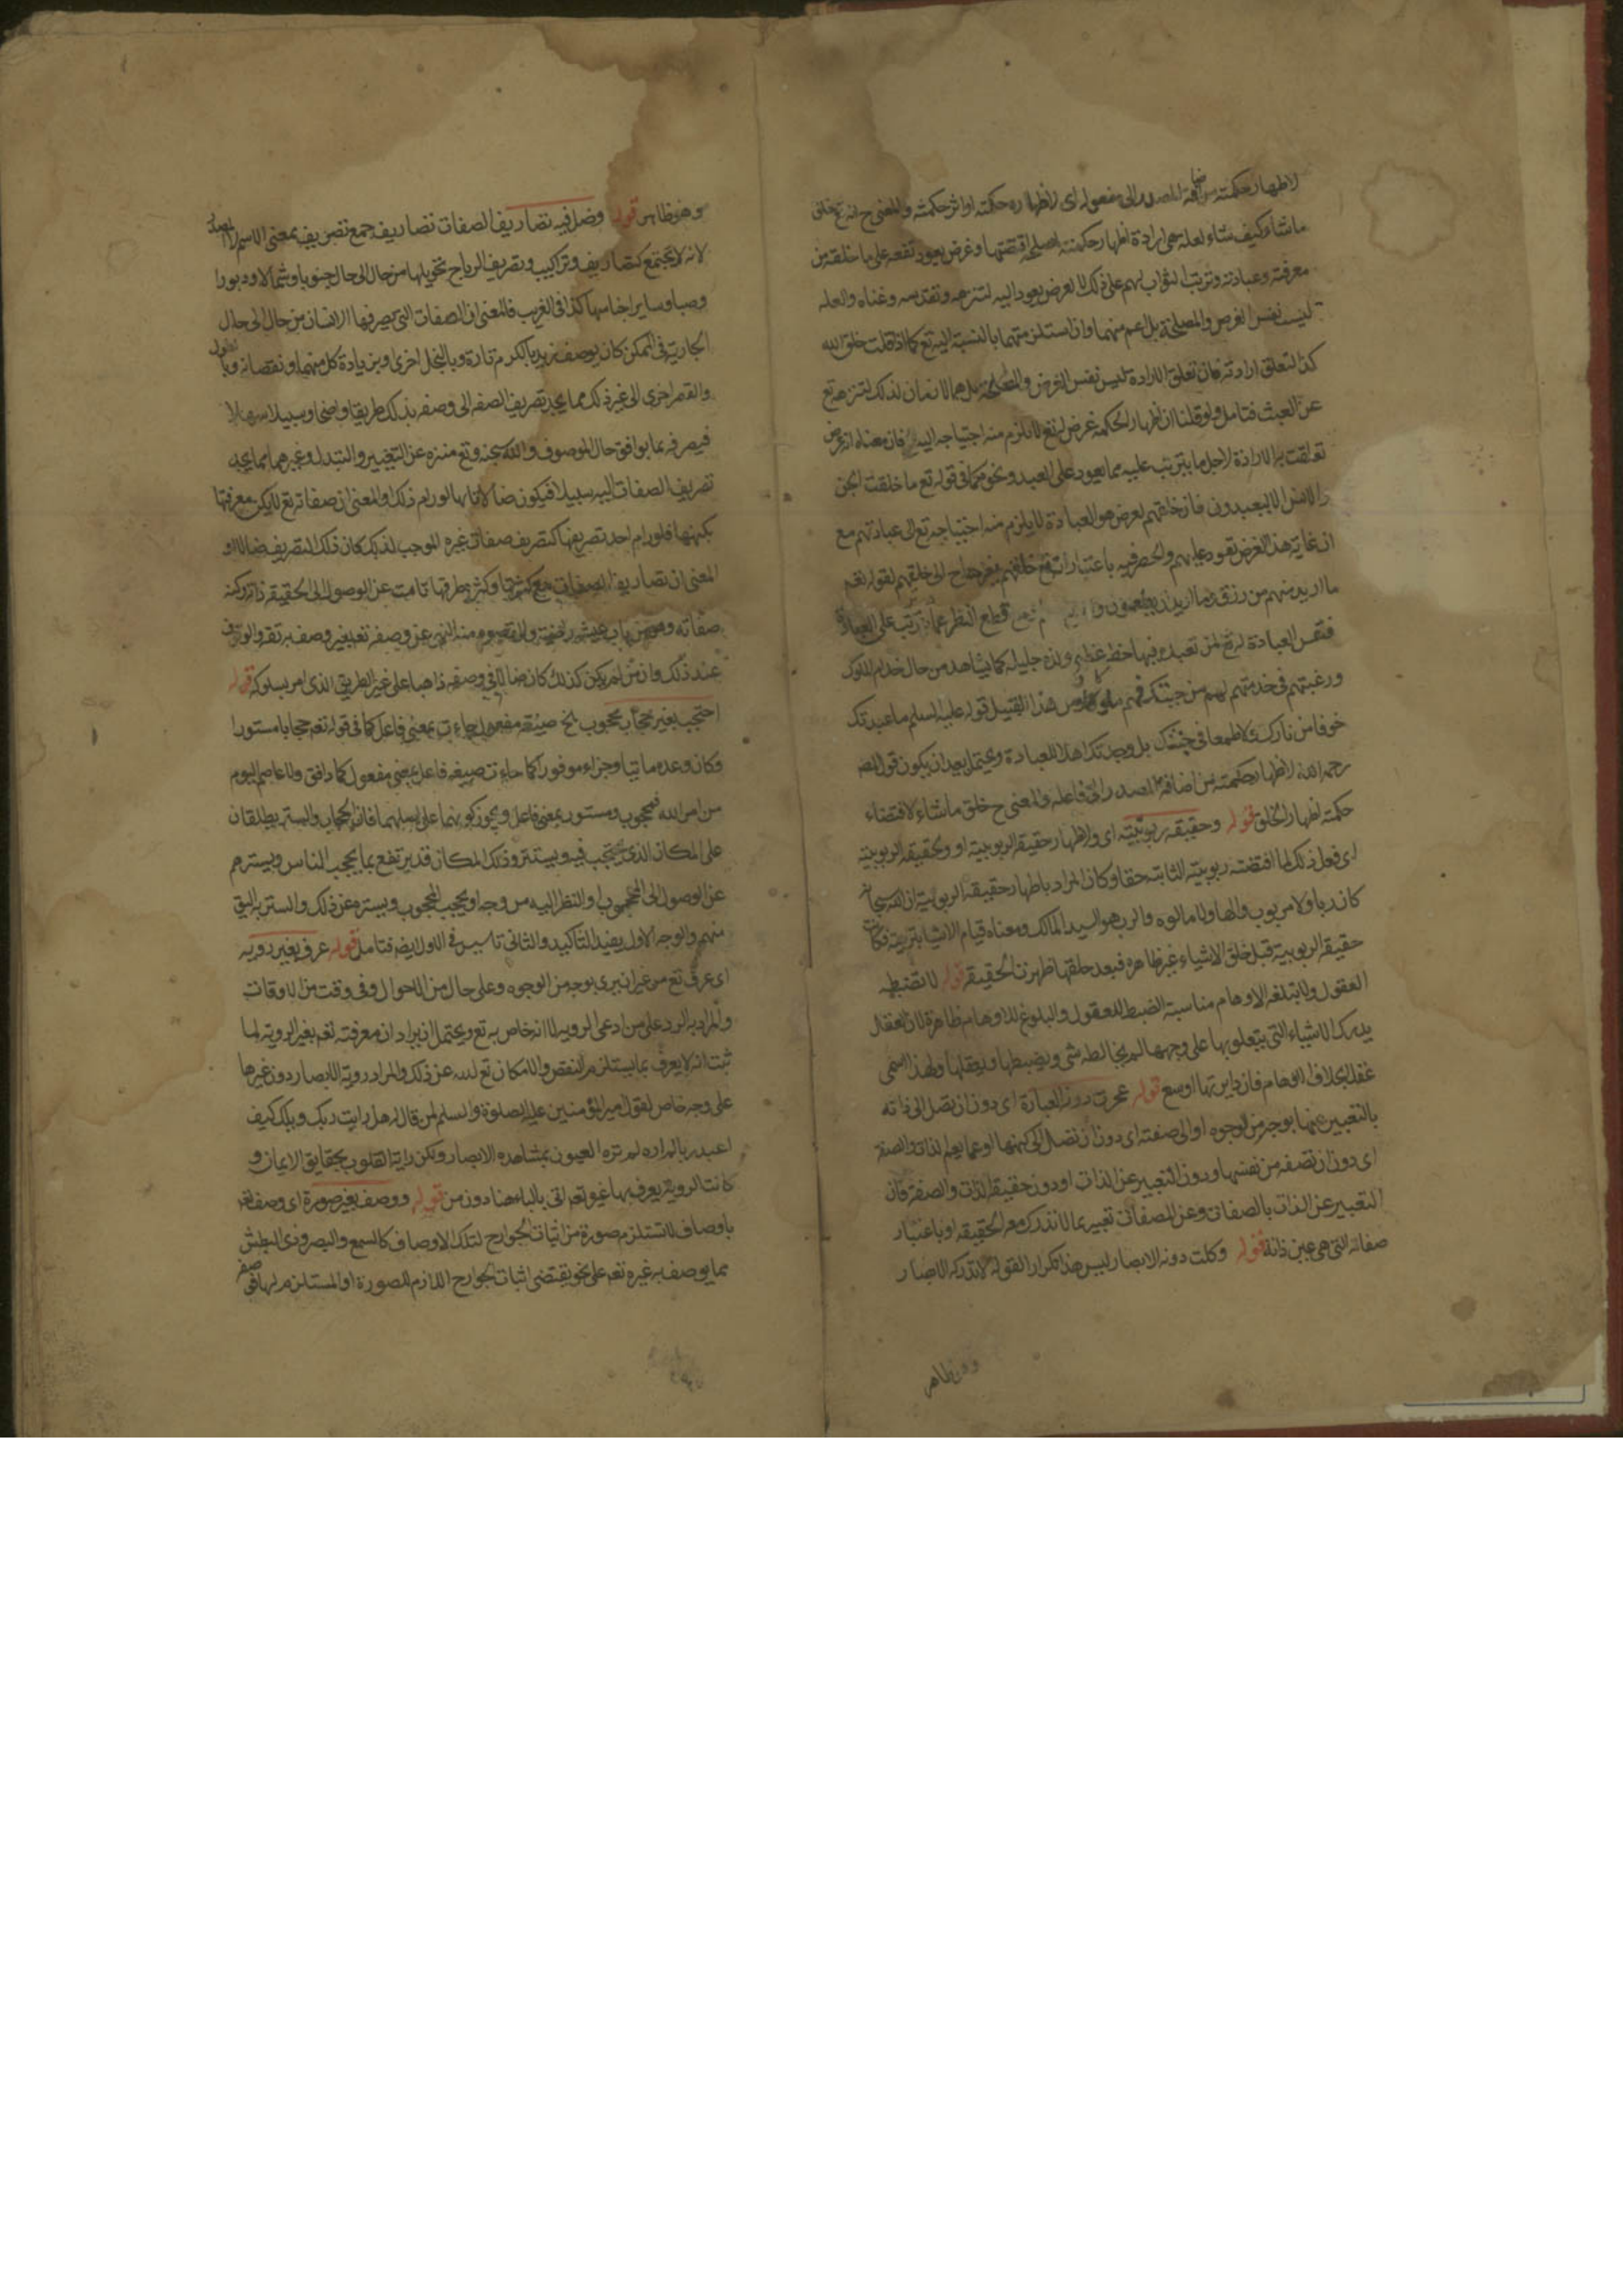 لاظهار حكمته من اضافة المصدر الى مفعوله اى لاظهاره حكمته او اثر حكمته والمعنى ح انه تع خلق
ما شاء كيف شاء لعلة هى ارادة اظهار حكمته لمصلحة اقتضتها وغرض يعود نفعه على ما خلقه من
معرفته وعبادته وترتب الثواب لهم على ذلك لا لغرض يعود اليه لتنزهه وتقدسه وغناه والعلة
ليست نفس الغرض والمصلحة بل اعم منهما وان استلزمتهما بالنسبة اليه تع كما اذا قلت خلق الله
كذا لتعلق ارادته فان تعلق الارادة ليس نفس الغرض والمصلحة بل هما لازمان لذلك لتنزهه تع
عن العبث فتامل ولو قلنا ان اظهار الحكمة غرض له تع لا يلزم منه احتياجه اليه فان معناه ان غرض
تعلقت به الارادة لاجل ما يترتب عليه مما يعود على العبد ونحوه كما فى قوله تع ما خلقت الجن
والانس الا ليعبدون فان خلقهم لغرض هو العبادة لا يلزم منه احتياجه تع الى عبادتهم مع
ان غاية هذا الغرض تعود عليهم والحصر فيه باعتبار انه تع خلقهم لغرض لا لاحتياج الى خلقهم لقوله تعم
ما اريد منهم من رزق وما اريد ان يطعمون قطع النظر عما يترتب على العبادة
فنفس العبادة له تع لمن تعبد به فيها حظ عظيم ولذة جليلة كما يشاهد من حال خدام الملوك
ورغبتهم فى خدمتهم لهم من حيث كونهم ملوكا ومن هذا القبيل قوله عليه السلم ما عبدتك
خوفا من نارك ولا طمعا فى جنتك بل وجدتك اهلا للعبادة ويحتمل بعيدا ان يكون قول المص
رحمه الله لاظهار حكمته من اضافة المصدر الى فاعله والمعنى ح خلق ما شاء لاقتضاء
حكمته اظهار الخلق قوله وحقيقة ربوبيته اى ولاظهار حقيقة الربوبية او ولحقيقة الربوبية
اى فعل ذلك لما اقتضته ربوبيته الثابتة حقا وكان المراد باظهار حقيقة الربوبية ان الله سبحانه
كان ربا ولا مربوب والها ولا مالوه والرب هو السيد المالك ومعناه قيام الاشياء بتربيته فكانت
حقيقة الربوبية قبل خلق الاشياء غير ظاهره فبعد خلقها ظهرت الحقيقة قوله لا تضبطه
العقول ولا تبلغه الاوهام مناسبة الضبط للعقول والبلوغ للاوهام ظاهرة لان العقل
يدرك الاشياء التى يتعلق بها على وجهها لم يخالطه شى ويضبطها ويعقلها ولهذا سمى
عقلا بخلاف الاوهام فان دايرتها اوسع قوله عجزت دونه العبارة اى دون ان تصل الى ذاته
بالتعبير عنها بوجه من الوجوه او الى صفته اى دون ان تصل الى كنهها او عما يعم الذات والصفة
اى دون ان تصفه من نفسها ودون التعبير عن الذات او دون حقيقة الذات والصفة فان
التعبير عن الذات بالصفات وعن الصفات تعبير بما لا تدرك معه الحقيقة او باعتبار
صفاته التى هى عين ذاته قوله وكلت دونه الابصار ليس هذا تكرارا لقوله لا تدركه الابصار
وهو ظاهر
وهو ظاهر قوله وضل فيه تصاريف الصفات تصاريف جمع تصريف بمعنى الاسم لا المصدر
لانه لا يجتمع كتصاريف وتراكيب وتصريف الرياح تحويلها من حال الى حال جنوبا وشمالا ودبورا
وصبا وساير اجناسها كذا فى الغريب فالمعنى ان الصفات التى يصرفها الانسان من حال الى حال
الجارية فى الممكن كان يوصف زيد بالكرم تارة وبالبخل اخرى او بزيادة كل منهما ونقصانه وبالطول
والقصر اخرى الى غير ذلك مما يجد تصريف الصفة الى وصفه بذلك طريقا واضحا وسبيلا سهلا
فيصرفه بما يوافق حال الموصوف والله سبحنه وتع منزه عن التغيير والتبدل وغيرهما مما يجد
تصريف الصفات اليه سبيلا فيكون ضالا تائها لو رام ذلك او المعنى ان صفاته تع لا يمكن معرفتها
بكنهها فلو رام احد تصريفها كتصريف صفات غيره الموجب لذلك كان ذلك التصريف ضالا او
المعنى ان تصاريف الصفات مع كثرتها وكثرة طرقها تاهت عن الوصول الى حقيقة ذاته وكنه
صفاته والمفهوم منه النهى عن وصفه تعم بغير وصف به نفسه والوقوف
عند ذلك وان من لم يكن كذلك كان ضالا فى وصفه ذاهبا على غير الطريق الذى امر بسلوكه قوله
احتجب بغير حجاب محجوب الخ صيغة مفعول جاءت بمعنى فاعل كما فى قوله تعم حجابا مستورا
وكان وعده ماتيا وجزاء موفورا كما جاءت صيغة فاعل بمعنى مفعول كماء دافق ولا عاصم اليوم
من امر الله فمحجوب ومستور بمعنى فاعل ويجوز كونهما على اصلهما فان الحجاب والستر يطلقان
على المكان الذى يحتجب فيه ويستتر وذلك المكان قد يرتفع بما يحجب الناس ويسترهم
عن الوصول الى المحجوب او النظر اليه من وجه او يحجب المحجوب ويستره عن ذلك والستر به اليق
منهم والوجه الاول يفيد التاكيد والثانى تاسيس فى الاول ايضا فتامل قوله عرف بغير روية
اى عرف تع من غير ان يرى بوجه من الوجوه وعلى حال من الاحوال وفى وقت من الاوقات
والمراد به الرد على من ادعى الروية لا انه خاص به تع ويحتمل ان يراد ان معرفته تعم بغير الروية لما
ثبت انه لا يعرف بما يستلزم النقص والامكان تع الله عن ذلك والمراد روية الابصار دون غيرها
على وجه خاص لقول امير المؤمنين عليه الصلوة والسلم لمن قال له هل رايت ربك ويلك كيف
اعبد ربا لم اره لم تره العيون بمشاهدة الابصار ولكن راته القلوب بحقايق الايمان و
كانت الروية يعرف بها غيره تعم اتى بالباء هنا دون من قوله ووصف بغير صورة اى وصف تعم
باوصاف لا تستلزم صورة من اثبات الجوارح لتلك الاوصاف كالسمع والبصر وذى البطش
مما يوصف به غيره تعم على نحو يقتضى اثبات الجوارح اللازم للصورة او المستلزم لها فى صفة